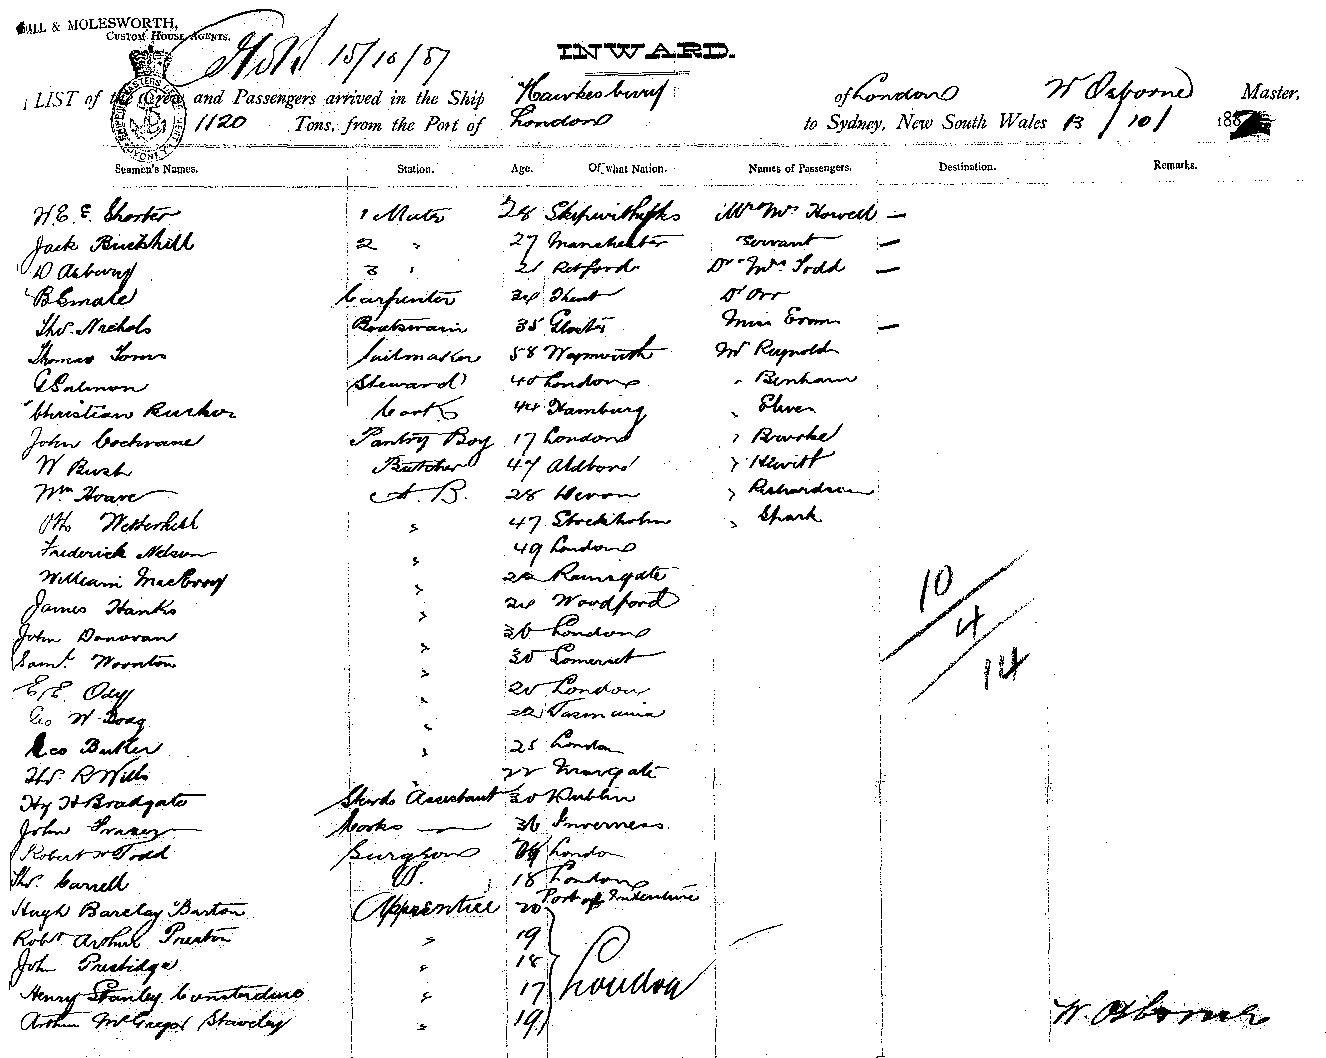 & MOLESWORTH,
CUSTOM HOUSE AGENTS.
15/10/87
INWARD.
LIST of the Crew and Passengers arrived in the Ship Hawkesbury of London W Osborne Master,
1120 Tons, from the Port of London to Sydney, New South Wales 13/10/ 188
Seamen's Names. Station. Age. Of what Nation. Names of Passengers. Destination. Remarks.
W. E. E. Shorter 1 Mate 28 Mr Mrs Howell —
Jack Buckhill 2 " 27 Manchester Servant —
D Asbury 3 " 21 Retford Dr Mrs Todd —
B Smale Carpenter Dr Orr
Thos. Nichols Boatswain 35 Gloster Miss Evans —
Thomas Toms Sailmaker 58 Weymouth Mr Reynolds
G Salmon Steward 40 London " Benham
Christian Rucker Cook 44 Hamburg "
John Cochrane Pantry Boy 17 London " Bourke
W Bush Butcher 47 Aldboro " Hewitt
Wm Hoare A.B. 28 Devon " Richardson
Otto Wetterhell " 47 Stockholm " Spark
Frederick Nelson " 49 London
William MacEvoy " 22 Ramsgate
James Hanks " Woodford
John Donovan " 30 London
Saml. Woonton " 30 Somerset
E. E. Ody " 20 London
Geo W Doag " 22 Tasmania
Leo Butler " 25 London
Thos. R Wills " 22 Margate
Hy H Bradgate Stwds Assistant 30 Dublin
John Frazer Cooks — 36 Inverness
Robert W Todd Surgeon London
Thos. Carrell 18 London
Port of Indenture
Hugh Barclay Barton Apprentice 20
Robt Arthur Preston " 19
John Prestidge " 18 London
Henry Stanley Consterdine " 17
Arthur McGregor Staveley " 19
10
4
14
W. Osborne